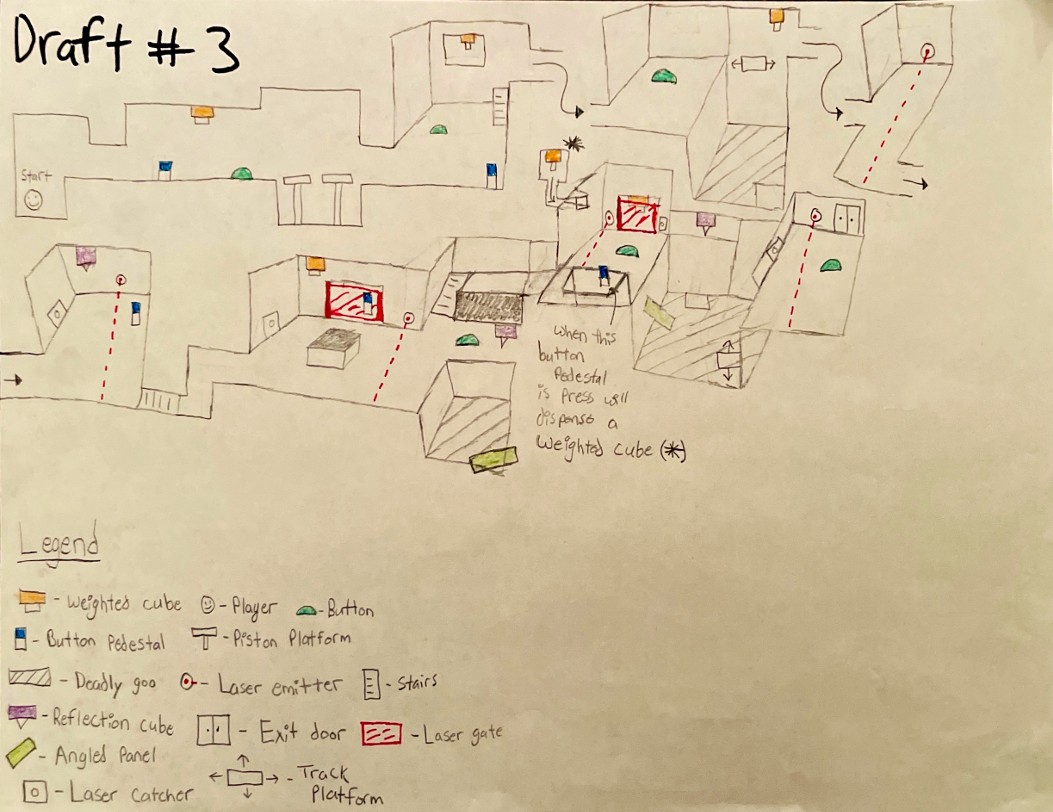 Draft #3
Start
When this
button
Pedestal
is press will
dispense a
Weighted cube (*)
Legend
- Weighted cube
- Player
- Button
- Button Pedestal
- Piston Platform
- Deadly goo
- Laser emitter
- Stairs
- Reflection cube
- Exit door
- Laser gate
- Angled Panel
- Laser Catcher
- Track
Platform